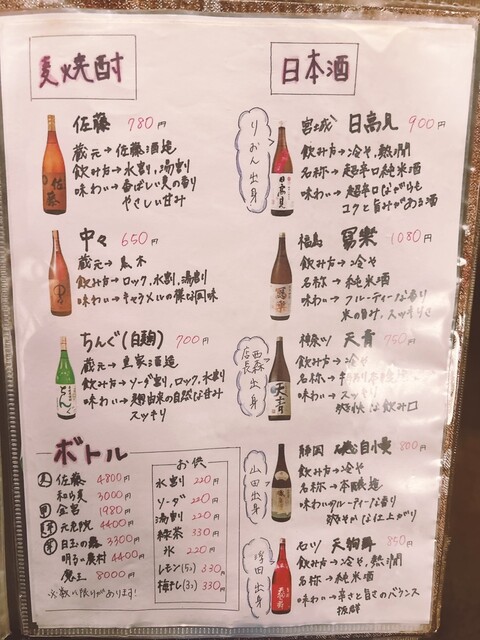 麦焼酎
佐藤 780円
蔵元→佐藤酒造
飲み方→水割、湯割
味わい→香ばしい麦の香り
やさしい甘み
中々 650円
蔵元→黒木
飲み方→ロック、水割、湯割
味わい→キャラメルの様な風味
ちんぐ(白麹) 700円
蔵元→重家酒造
飲み方→ソーダ割、ロック、水割
味わい→麹由来の自然な甘み
スッキリ
ボトル
佐藤 4800
和ら麦 3000
金宮 1980
元老院 4400
目玉の露 3300
明るい農村 4400
魔王 8000
※数に限りがあります!
お供
水割 220
ソーダ 220
湯割 220
緑茶 330
氷 220
レモン(5ヶ) 330
梅干し(3ヶ) 330
日本酒
りおん出身
宮城 日高見 900円
飲み方→冷や、熱燗
名称→超辛口純米酒
味わい→超辛口ながらも
コクと旨みがある酒
福島 冩樂 1080円
飲み方→冷や
名称→純米酒
味わい→フルーティーな香り
米の旨み、スッキリさ
西森店長出身
神奈川 天青 750円
飲み方→冷や
名称→
味わい→スッキリ
爽快な飲み口
山田出身
静岡 磯自慢 800円
飲み方→冷や
名称→本醸造
味わい→フルーティーな香り
爽やかな仕上がり
澤田出身
石川 天狗舞 850円
飲み方→冷や、熱燗
名称→純米酒
味わい→辛さと旨さのバランス
抜群